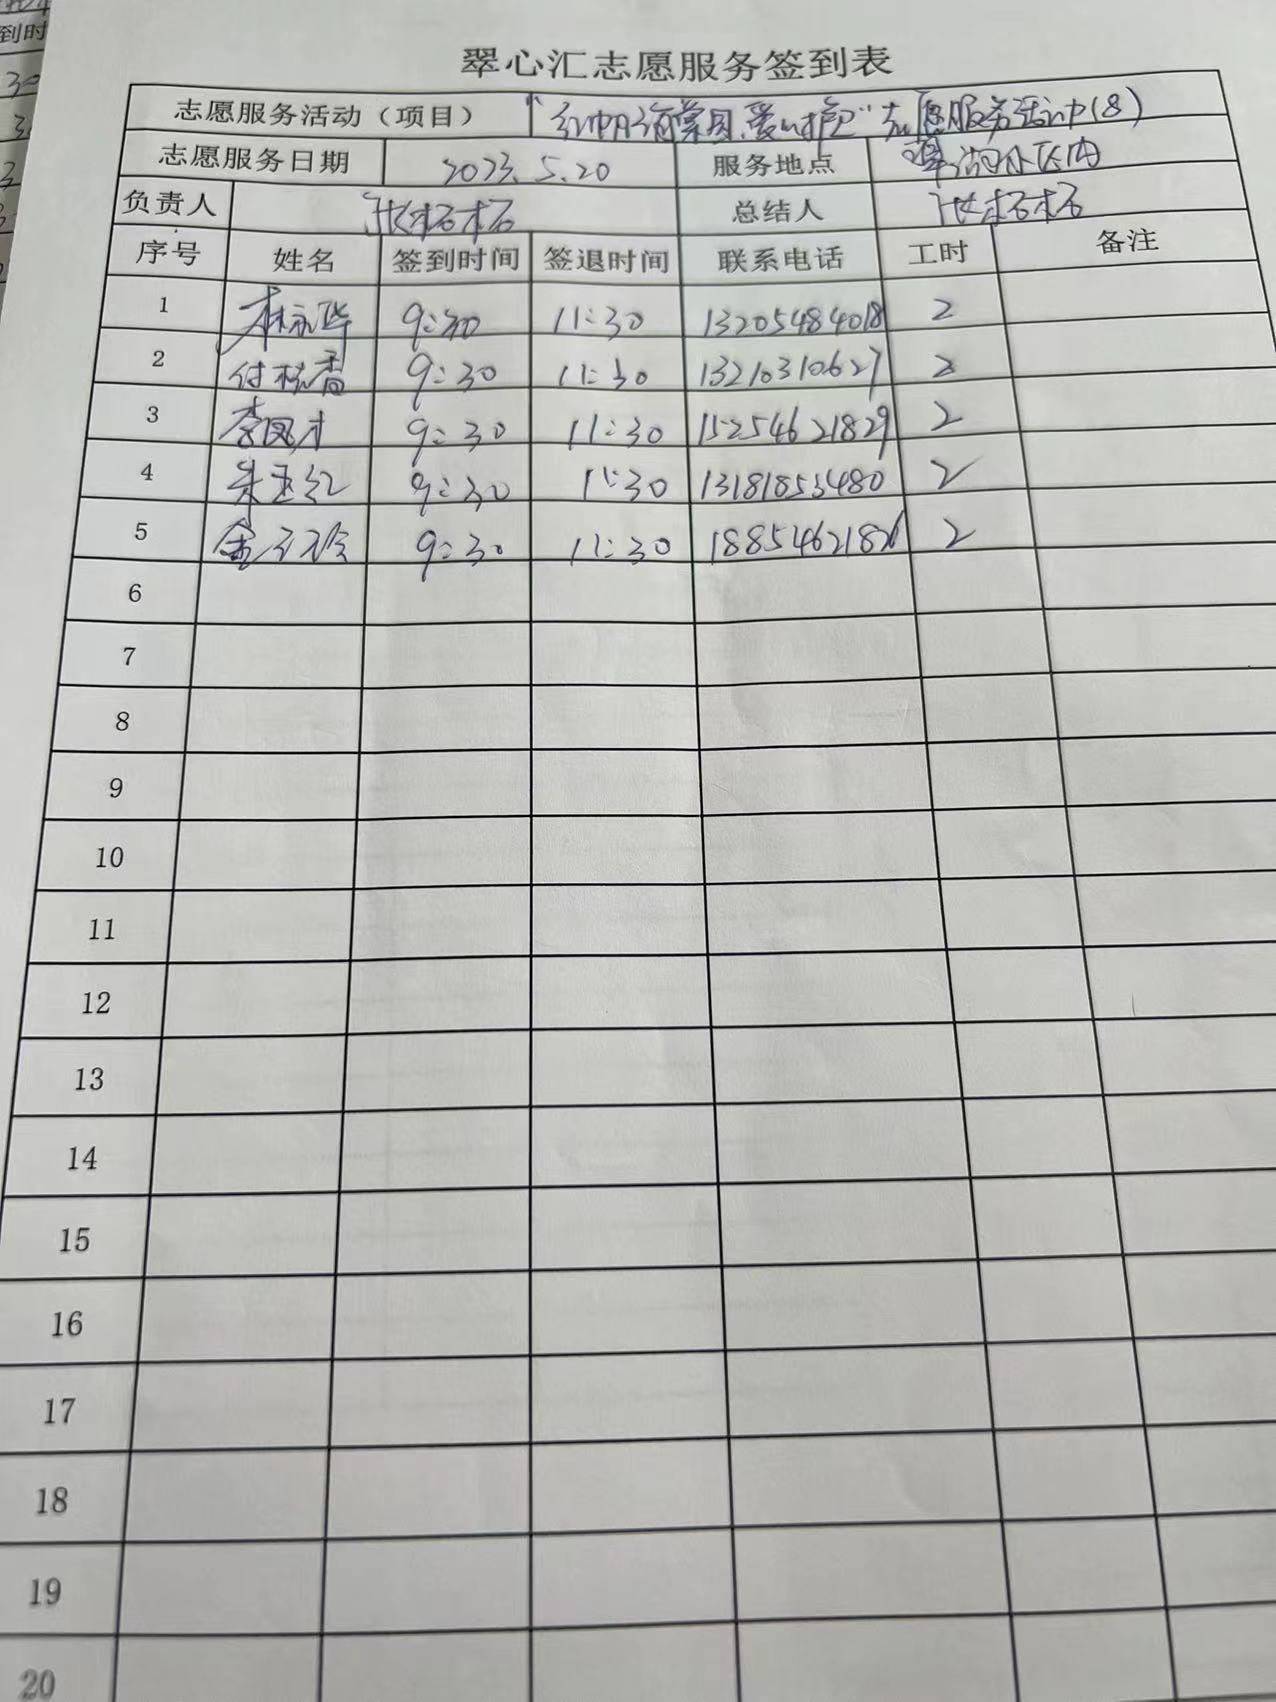 翠心汇志愿服务签到表
志愿服务活动（项目） 志愿服务活动（8）
志愿服务日期 2023.5.20 服务地点 翠湖小区内
负责人 总结人
序号 姓名 签到时间 签退时间 联系电话 工时 备注
1 9:30 11:30 13205484018 2
2 付桂香 9:30 11:30 13210310627 2
3 李凤才 9:30 11:30 15254621829 2
4 朱玉红 9:30 11:30 13181853480 2
5 9:30 11:30 18854621826 2
6
7
8
9
10
11
12
13
14
15
16
17
18
19
20
到时